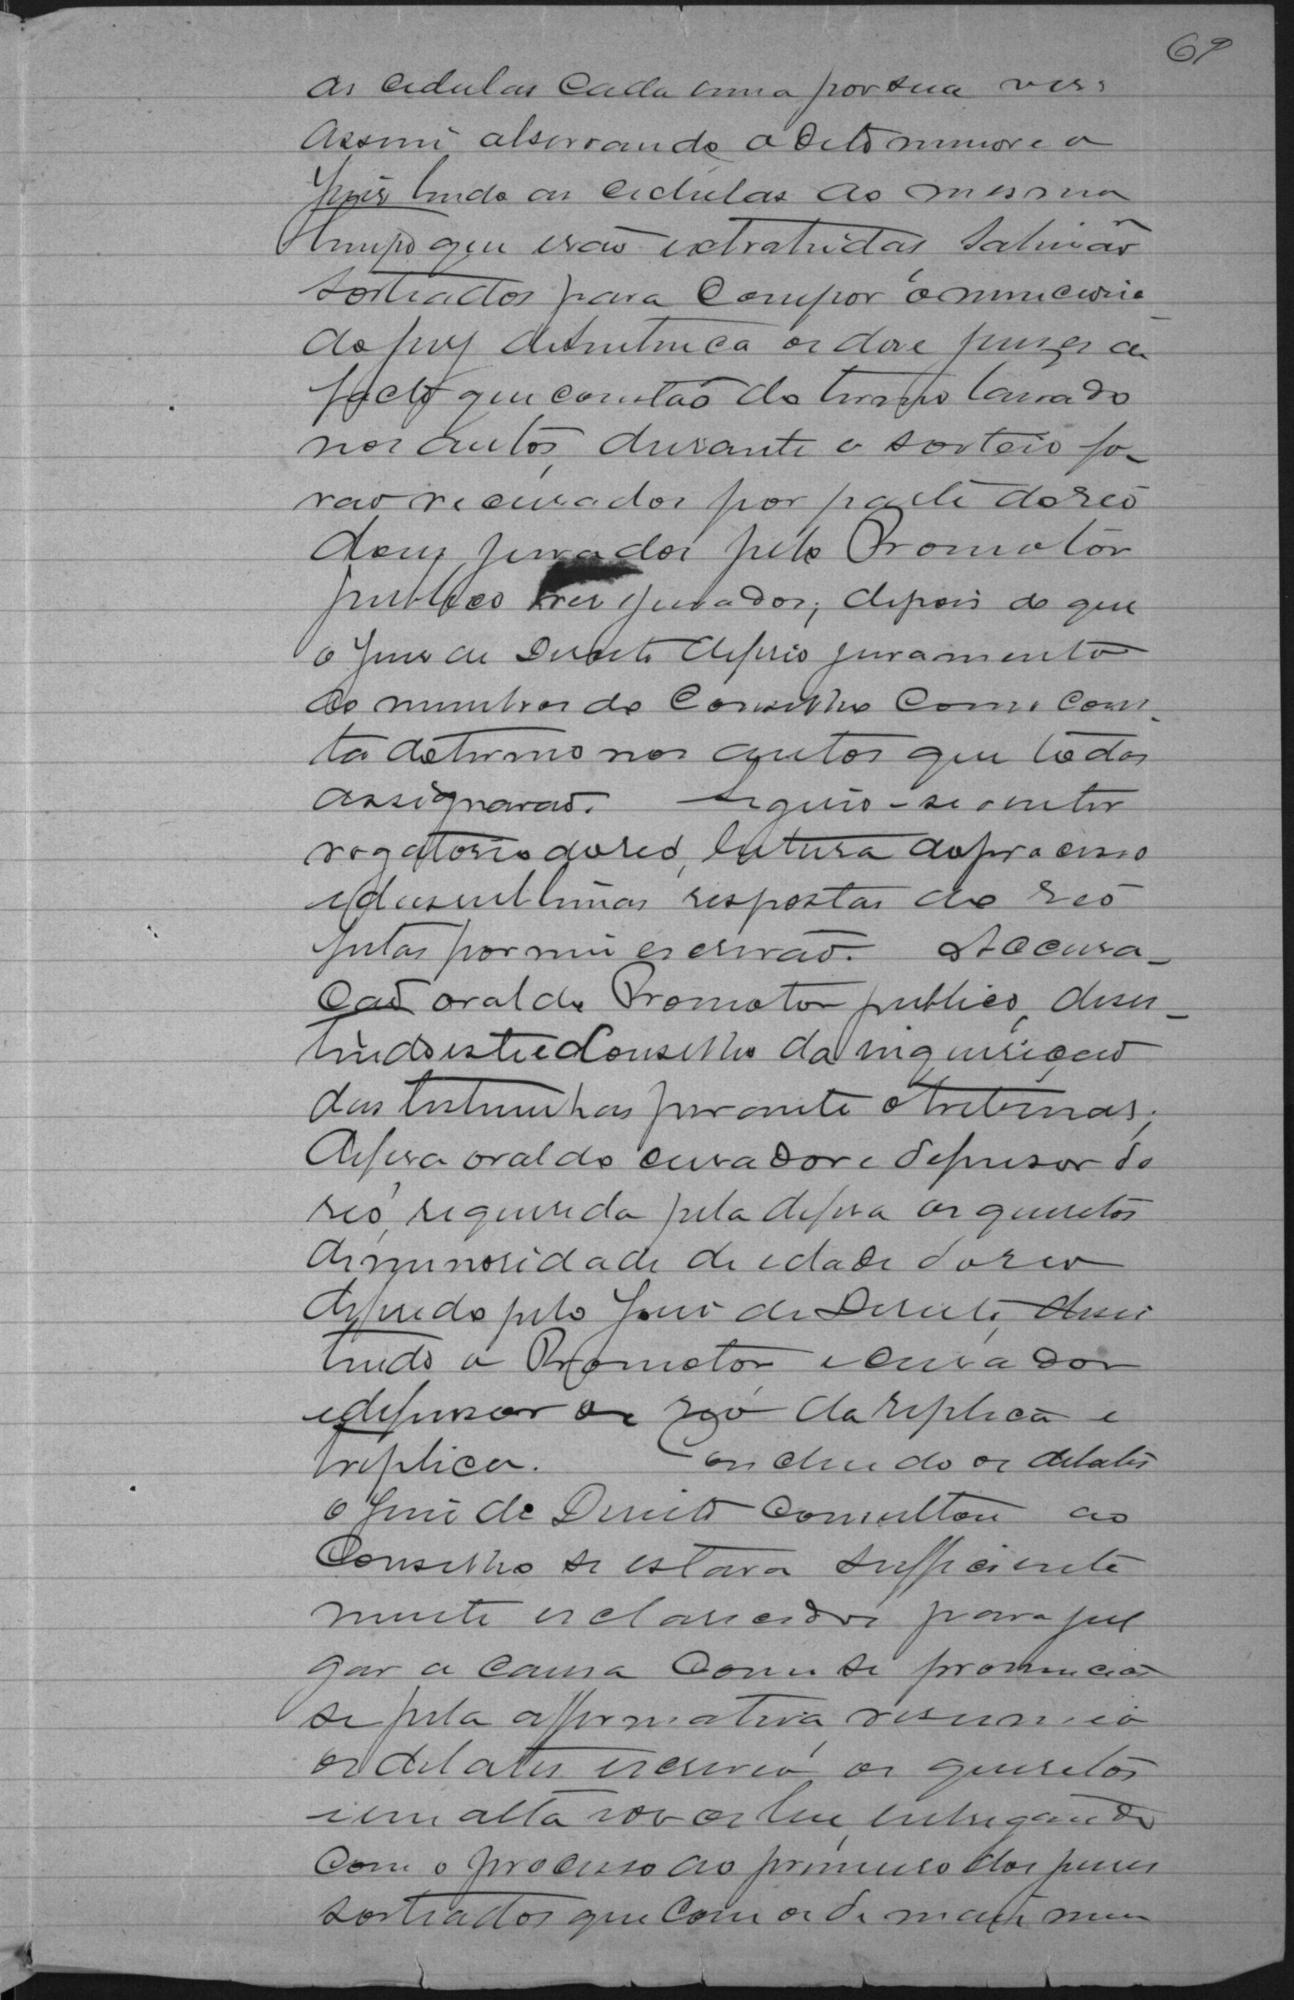 69
as cedulas cada uma por sua vez.
Assim observando o dito menor e o
Juis lendo as cedulas ao mesmo
tempo que erão extrahidas sahirão
sorteados para compor o
do jury de sentenca os doze juizes de
facto que constão do termo lavrado
nos autos, durante o sorteio fo-
rao recusados por parte do reo
dous jurados pelo Promotor
publico tres jurados; depois do que
o Juis de Direito deferio juramento
ao membros do Conselho como cons-
ta do termo nos autos que todos
assignarao. Seguio-se o inter
rogatorio do reo, leitura do processo
e das ultimas respostas do reo
feitas por mim escrivão. Accusa-
cao oral do Promotor publico, desis-
tindo este e Conselho da inquirição
das testemunhas perante o tribunal;
defesa oral do curador e defensor do
reo, requerida pela defesa os quesitos
de minoridade de edade do reo
deferido pelo Juis de Direito, desis
tindo o Promotor e curador
e defensor do reo da replica e
treplica. Concluido os debates
o Juis de Direito consultou ao
Conselho se estava sufficiente
mente esclarecidos para jul
gar a causa como se pronuncia
se pela affirmativa, resumio
os debates escreveo os quesitos
e em alta vos os leu, entregando
com o processo ao primeiro dos juises
sorteados que com os de mais mem